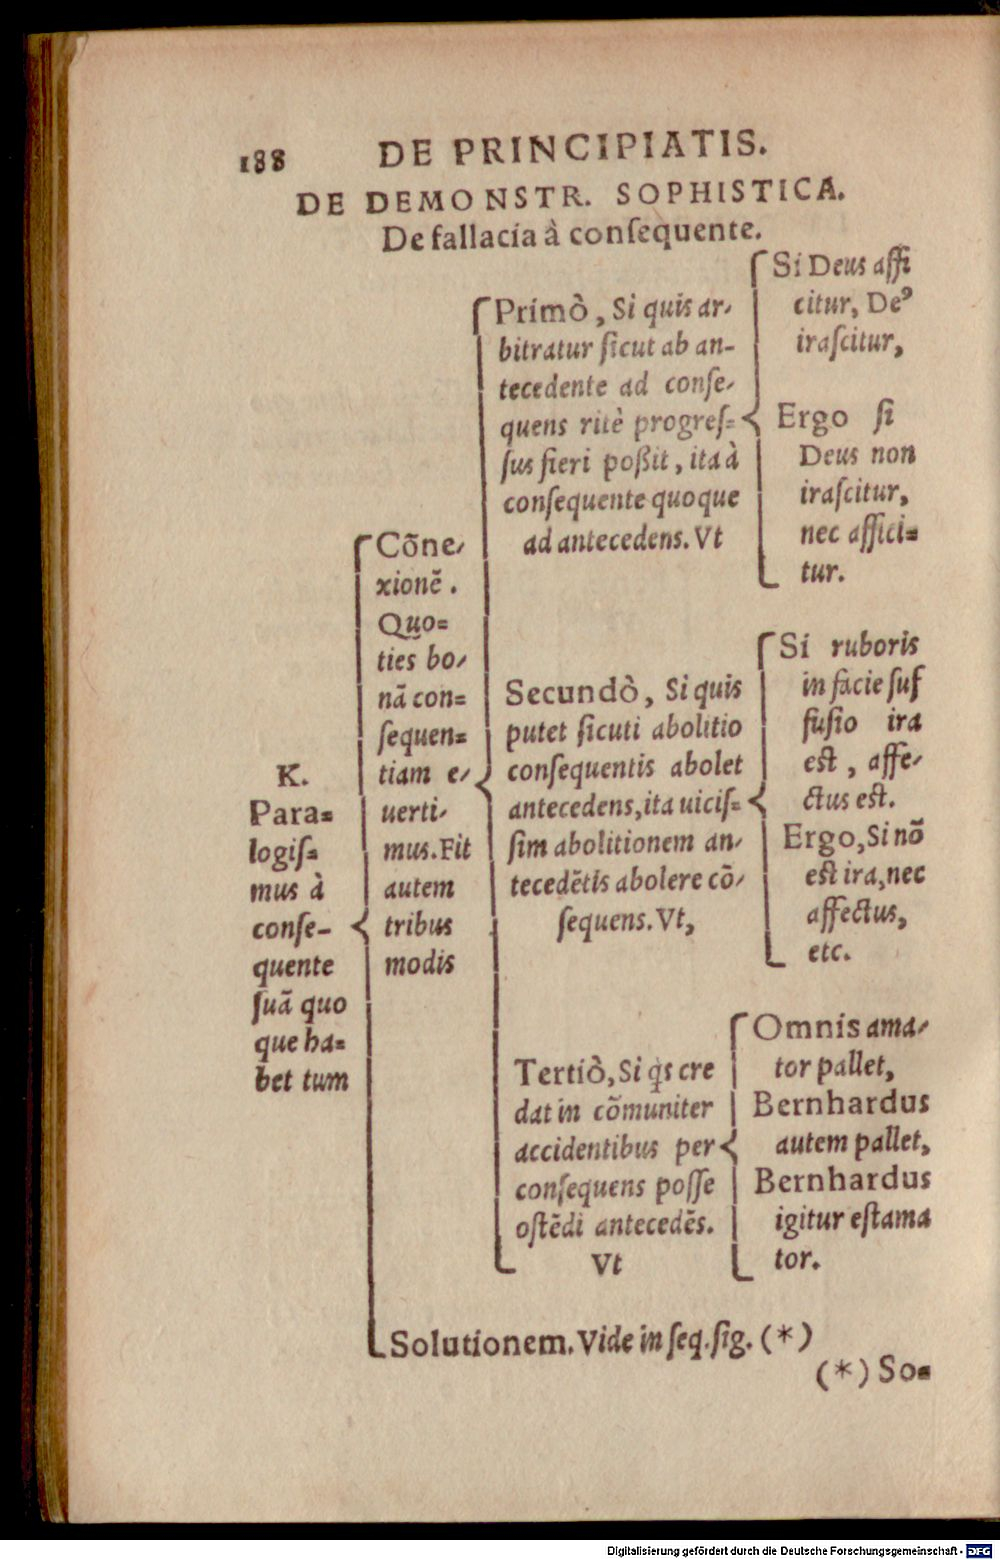 188 DE PRINCIPIATIS.
DE DEMONSTR. SOPHISTICA.
De fallacia à conſequente.
K.
Para=
logiſ=
mus à
conſe-
quente
ſuã quo
que ha=
bet tum
Cõne/
xionẽ.
Quo=
ties bo/
nã con=
ſequen=
tiam e/
uerti/
mus. Fit
autem
tribus
modis
Primò, Si quis ar/
bitratur ſicut ab an-
tecedente ad conſe/
quens ritè progreſ=
ſus fieri poßit, ita à
conſequente quoque
ad antecedens. Vt
Si Deus affi
citur, Deꝰ
iraſcitur,
Ergo ſi
Deus non
iraſcitur,
nec affici=
tur.
Secundò, Si quis
putet ſicuti abolitio
conſequentis abolet
antecedens, ita uiciſ=
ſim abolitionem an/
tecedẽtis abolere cõ/
ſequens. Vt,
Si ruboris
in facie ſuf
fuſio ira
eſt, affe/
ctus eſt.
Ergo, Si nõ
eſt ira, nec
affectus,
etc.
Tertiò, Si q̃s cre
dat in cõmuniter
accidentibus per
conſequens poſſe
oſtẽdi antecedẽs.
Vt
Omnis ama/
tor pallet,
Bernhardus
autem pallet,
Bernhardus
igitur eſt ama
tor.
Solutionem. Vide in ſeq. ſig. (*)
(*) So=
Digitalisierung gefördert durch die Deutsche Forschungsgemeinschaft - DFG